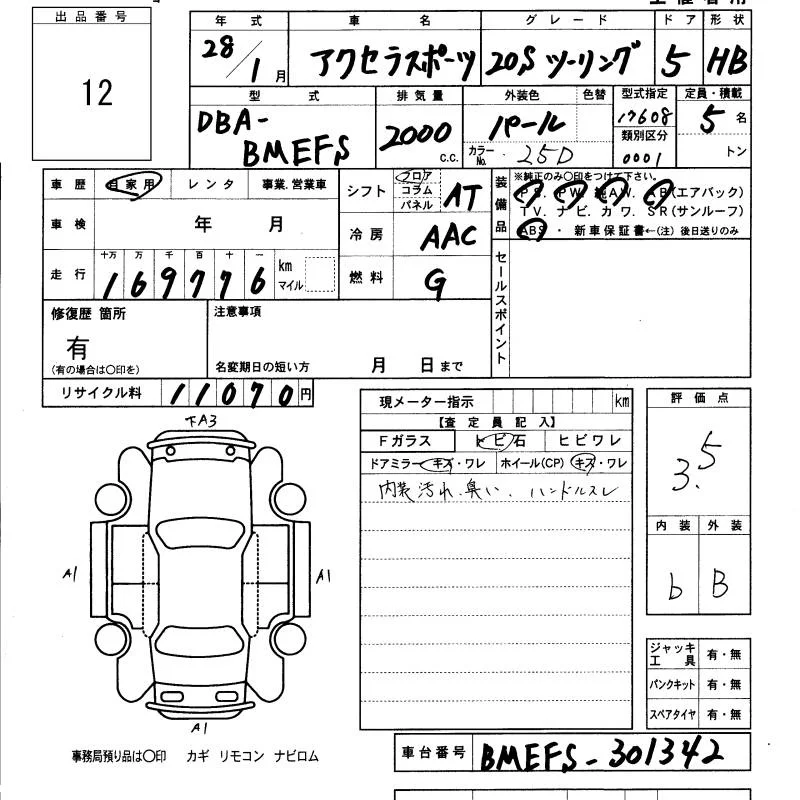 出品番号
12
年式 車名 グレード ドア 形状
28/1月 アクセラスポーツ 20S ツーリング 5 HB
型式 排気量 外装色 色替 型式指定 定員・積載
DBA-BMEFS 2000 c.c. パール 17608 5名
カラーNo. 25D 類別区分 0001 トン
車歴 自家用 レンタ 事業.営業車 シフト フロア コラム パネル AT
装備品 ※純正のみ〇印をつけて下さい。
PS. PW. 純AW. AB(エアバック)
TV. ナビ. カワ. SR(サンルーフ)
ABS ・ 新車保証書←(注)後日送りのみ
車検 年 月 冷房 AAC
走行 十万 万 千 百 十 一
169776 km マイル 燃料 G
セールスポイント
修復歴 箇所 注意事項
有
(有の場合は〇印を) 名変期日の短い方 月 日まで
リサイクル料 11070円
現メーター指示 km
評価点
3.5
【査定員記入】
Fガラス トビ石 ヒビワレ
ドアミラー キズ・ワレ ホイール(CP) キズ・ワレ
内装汚れ.臭い. ハンドルスレ
内装 外装
b B
下A3
A1
A1
A1
ジャッキ工具 有・無
パンクキット 有・無
スペアタイヤ 有・無
事務局預り品は〇印 カギ リモコン ナビロム
車台番号 BMEFS-301342